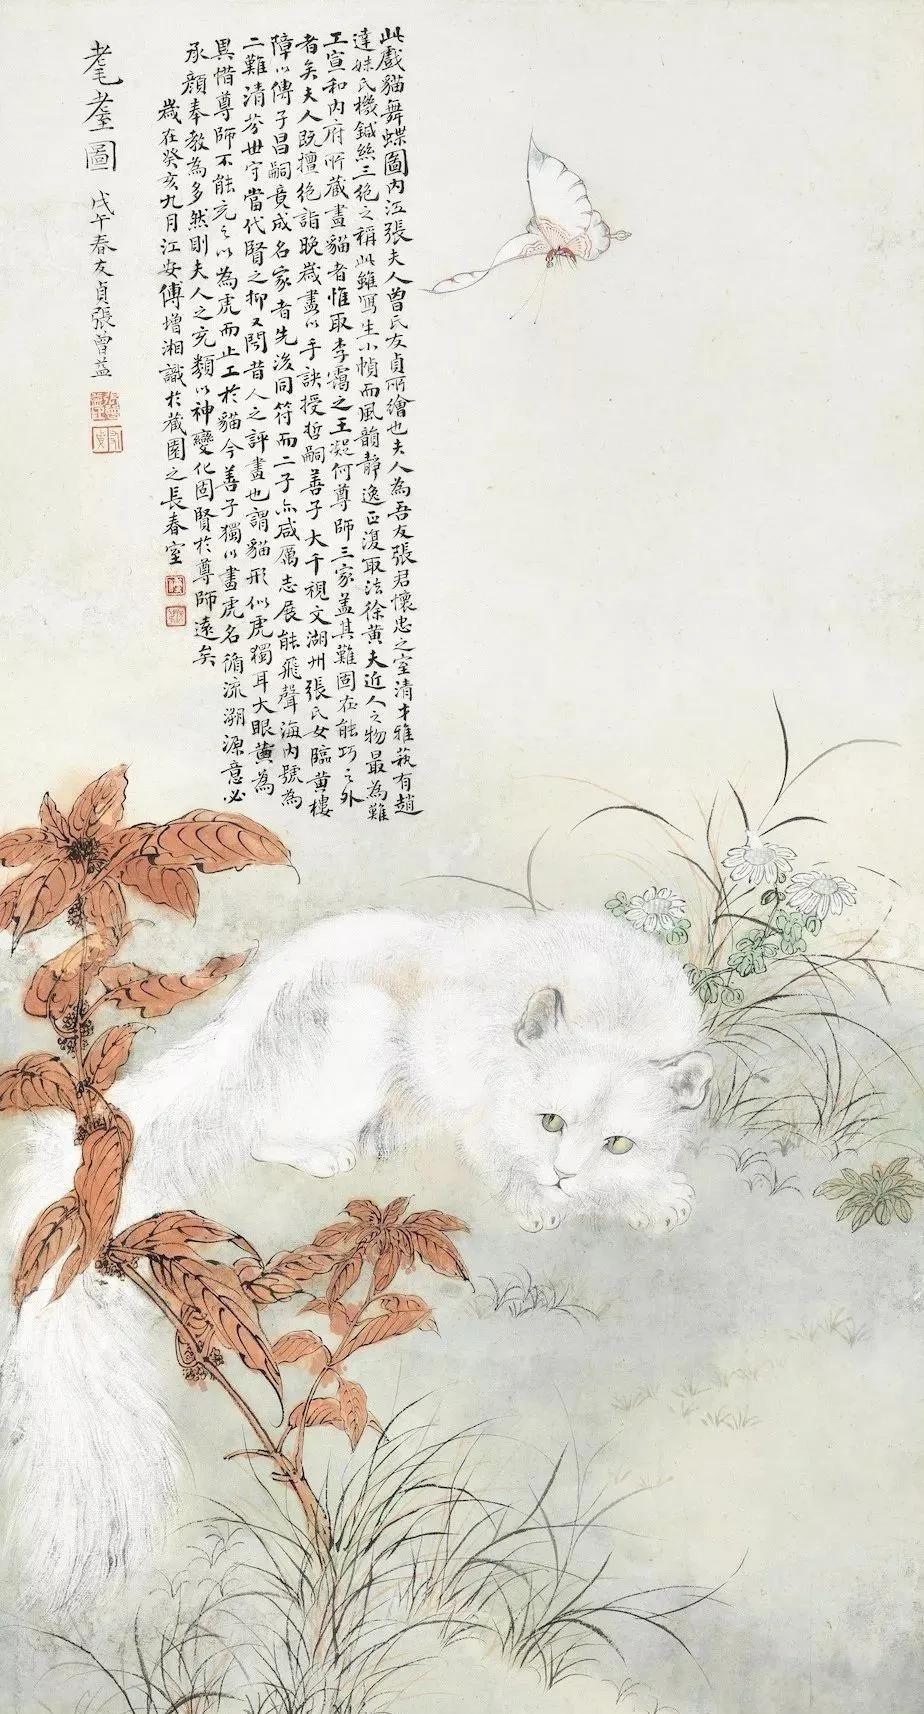 此戲貓舞蝶圖內江張夫人曾氏友貞所繪也夫人為吾友張君懷忠之室清才雅蓺有趙
達妹氏機鍼絲三絕之稱此雖寫生小幀而風韻靜逸正復取法徐黃夫近人之物最為難
工宣和內府所藏畫貓者惟取李靄之王凝何尊師三家蓋其難固在能巧之外
者矣夫人既擅絕詣晚歲畫以手訣授哲嗣善子大千視文湖州張氏女臨黃樓
障以傳子昌嗣竟成名家者先後同符而二子亦咸厲志展能飛聲海內號為
二難清芬世守當代賢之抑又聞昔人之評畫也謂貓形似虎獨耳大眼黃為
異惜尊師不能充之以為虎而止工於貓今善子獨以畫虎名循流溯源意必
承顏奉教為多然則夫人之充類以神變化固賢於尊師遠矣
歲在癸亥九月江安傅增湘識於藏園之長春室
耄耋圖
戊午春友貞張曾益